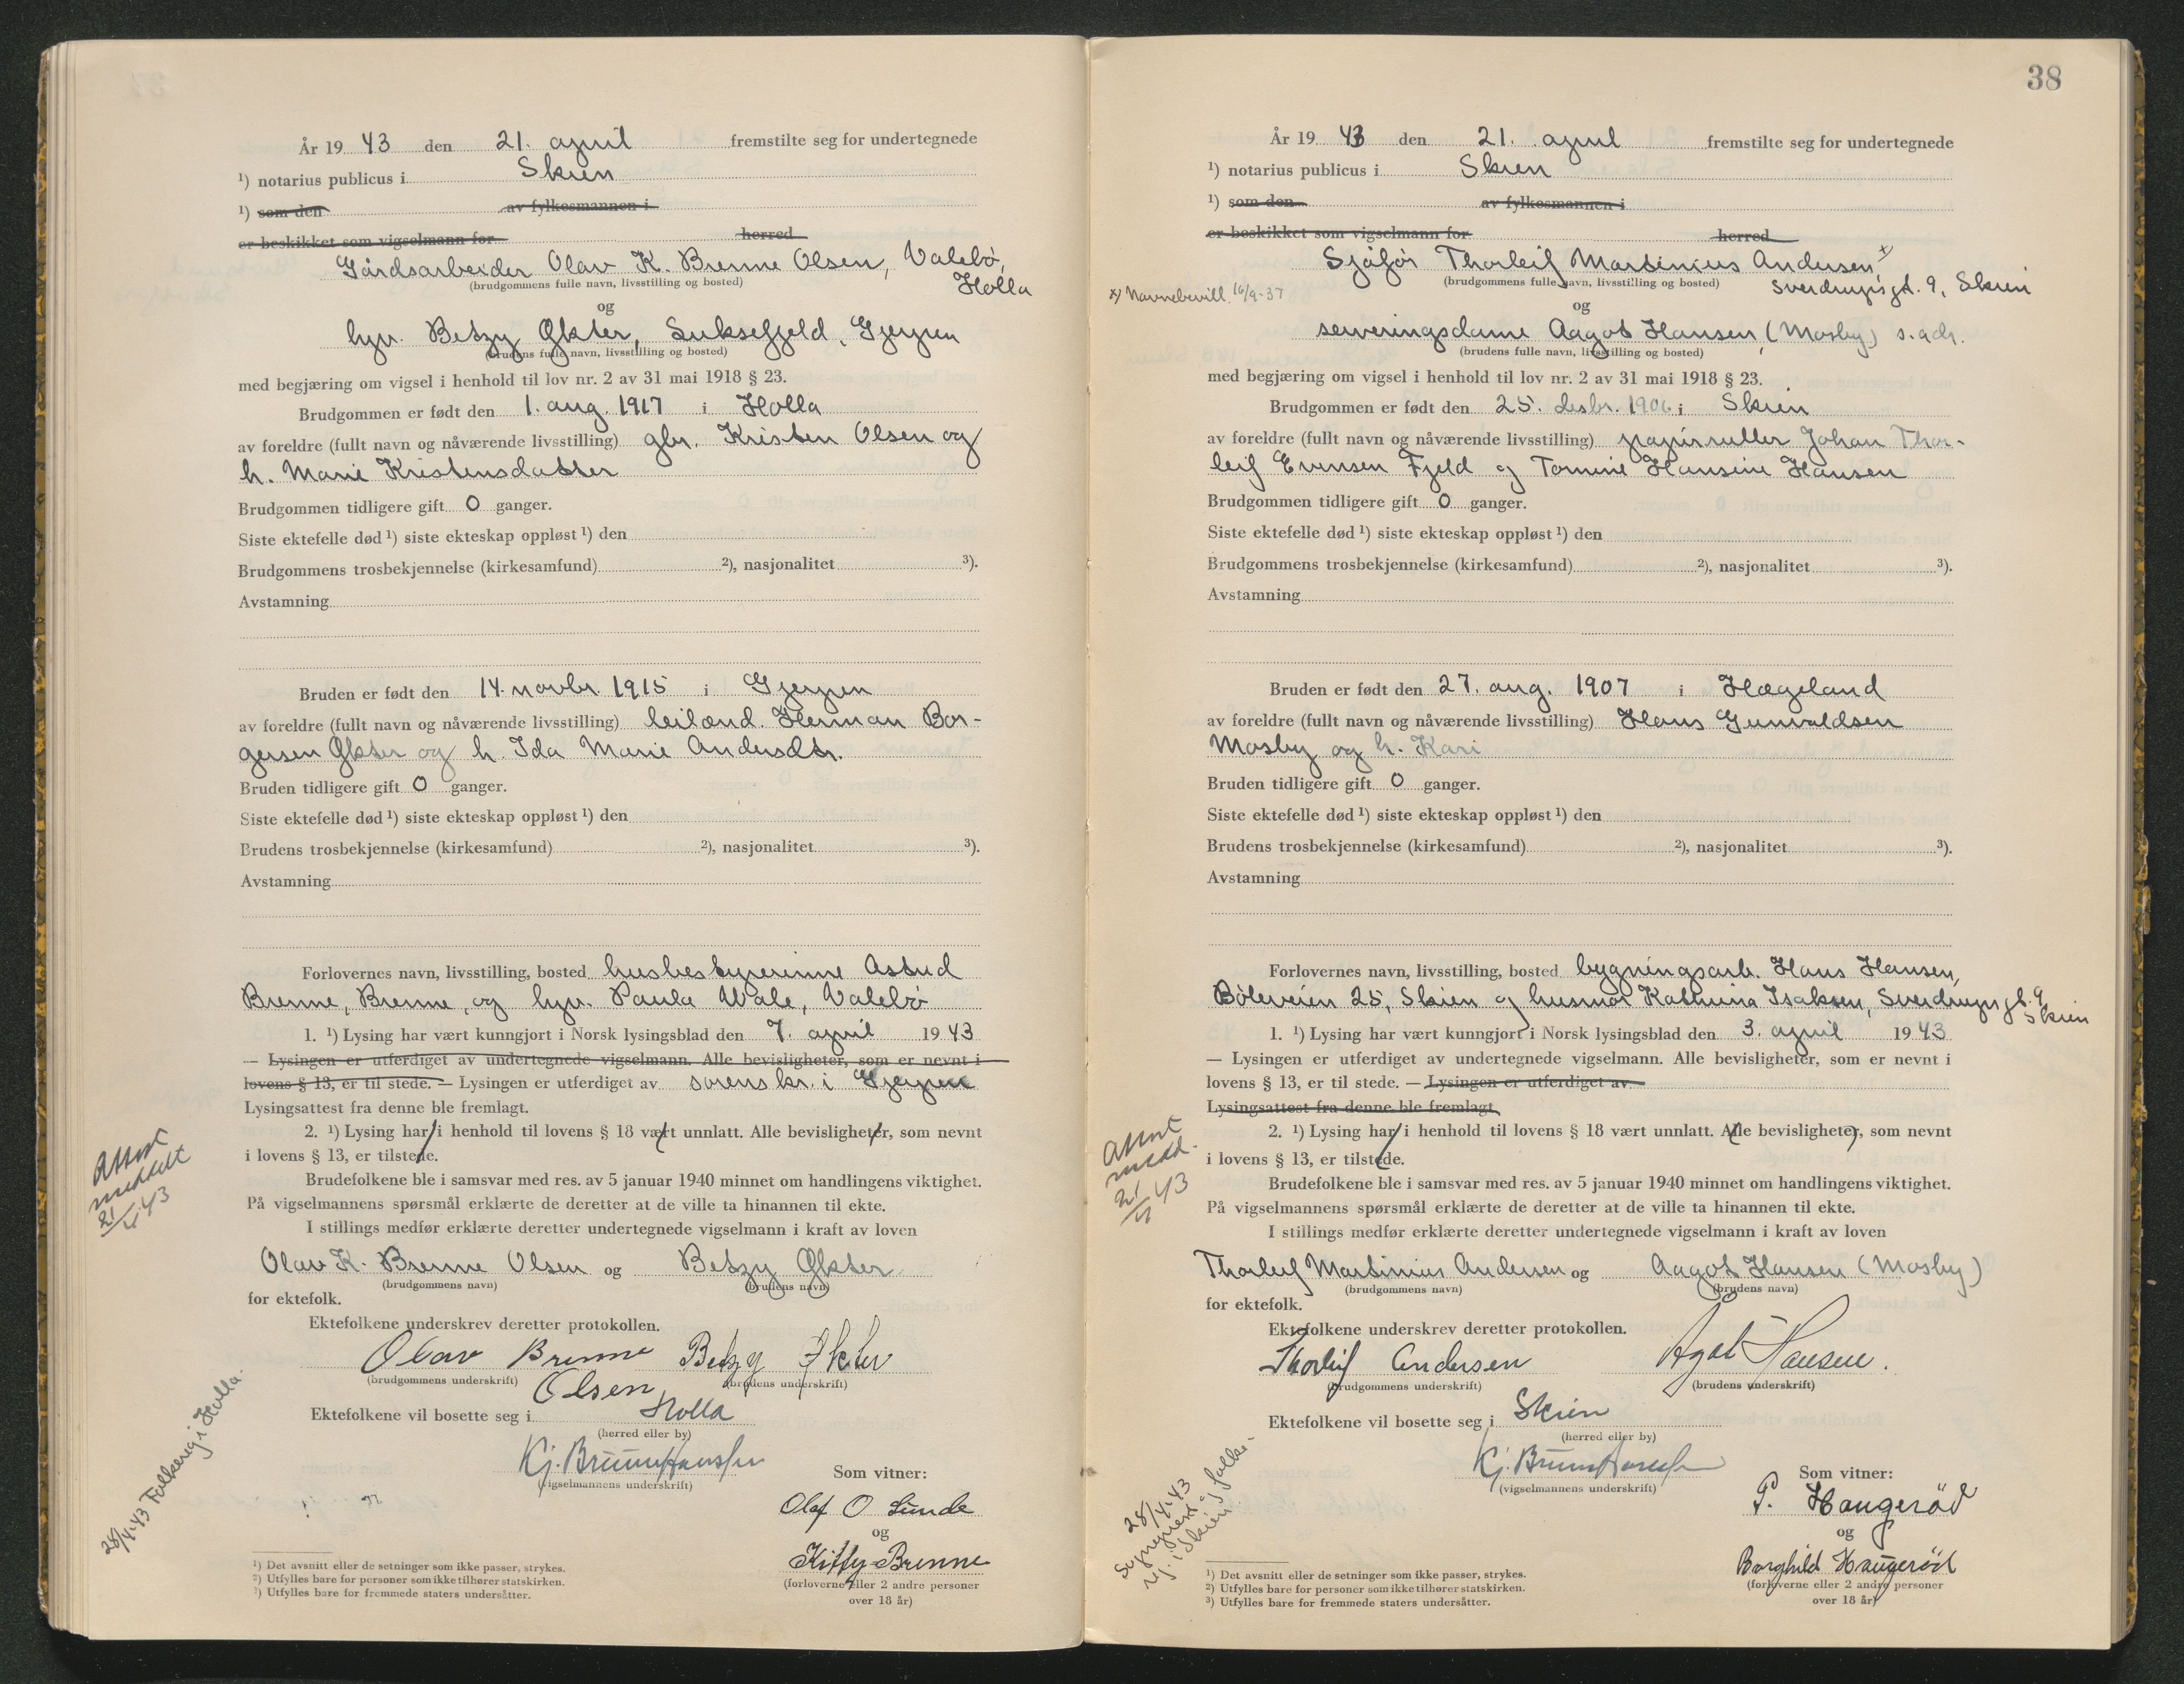 År 19 43 den 21. april fremstilte seg for undertegnede
¹) notarius publicus i Skien
¹) som den av fylkesmannen i
er beskikket som vigselmann for herred
Gårdsarbeider Olav K. Brenne Olsen, Valebø,
Holla
(brudgommens fulle navn, livsstilling og bosted)
og
hpr. Betzy Økter, Luksefjeld, Gjerpen
(brudens fulle navn, livsstilling og bosted)
med begjæring om vigsel i henhold til lov nr. 2 av 31 mai 1918 § 23.
Brudgommen er født den 1. aug. 1917 i Holla
av foreldre (fullt navn og nåværende livsstilling) gbr. Kristen Olsen og
h. Marie Kristensdatter
Brudgommen tidligere gift 0 ganger.
Siste ektefelle død ¹) siste ekteskap oppløst ¹) den
Brudgommens trosbekjennelse (kirkesamfund) ²), nasjonalitet ³).
Avstamning
Bruden er født den 14. novbr. 1915 i Gjerpen
av foreldre (fullt navn og nåværende livsstilling) leilænd. Herman Bor-
gersen Økter og h. Ida Marie Andersdtr.
Bruden tidligere gift 0 ganger.
Siste ektefelle død ¹) siste ekteskap oppløst ¹) den
Brudens trosbekjennelse (kirkesamfund) ²), nasjonalitet ³).
Avstamning
Forlovernes navn, livsstilling, bosted husbestyrerinne Astrid
Brenne, Brenne, og hpr. Paula Wale, Valebø
1. ¹) Lysing har vært kunngjort i Norsk lysingsblad den 7. april 19 43
— Lysingen er utferdiget av undertegnede vigselmann. Alle bevisligheter, som er nevnt i
lovens § 13, er til stede. — Lysingen er utferdiget av sorenskr. i Gjerpen
Lysingsattest fra denne ble fremlagt.
2. ¹) Lysing har i henhold til lovens § 18 vært unnlatt. Alle bevisligheter, som nevnt
i lovens § 13, er tilstede.
Attest
meddelt
21/4 43
Brudefolkene ble i samsvar med res. av 5 januar 1940 minnet om handlingens viktighet.
På vigselmannens spørsmål erklærte de deretter at de ville ta hinannen til ekte.
I stillings medfør erklærte deretter undertegnede vigselmann i kraft av loven
Olav K. Brenne Olsen og Betzy Økter
(brudgommens navn) (brudens navn)
for ektefolk.
Ektefolkene underskrev deretter protokollen.
Olav Brenne Betzy Økter
(brudgommens underskrift) Olsen (brudens underskrift)
Ektefolkene vil bosette seg i Holla
(herred eller by)
Kj. Bruun Hanssen
(vigselmannens underskrift)
Som vitner:
Olaf O Sunde
og
Kitty Brenne
(forloverne eller 2 andre personer
over 18 år)
28/4-43 Folkereg i Holla.
¹) Det avsnitt eller de setninger som ikke passer, strykes.
²) Utfylles bare for personer som ikke tilhører statskirken.
³) Utfylles bare for fremmede staters undersåtter.
38
År 19 43 den 21. april fremstilte seg for undertegnede
¹) notarius publicus i Skien
¹) som den av fylkesmannen i
er beskikket som vigselmann for herred
Sjåfør Thorleif Martinius Andersen, x)
(brudgommens fulle navn, livsstilling og bosted) Sverdrupsgt. 9, Skien
x) Navnebevill. 16/9-37
og
serveringsdame Aagot Hansen, (Mosby) s. adr.
(brudens fulle navn, livsstilling og bosted)
med begjæring om vigsel i henhold til lov nr. 2 av 31 mai 1918 § 23.
Brudgommen er født den 25. desbr. 1906 i Skien
av foreldre (fullt navn og nåværende livsstilling) papirruller Johan Thor-
leif Evensen Fjeld og Tomine Hansine Hansen
Brudgommen tidligere gift 0 ganger.
Siste ektefelle død ¹) siste ekteskap oppløst ¹) den
Brudgommens trosbekjennelse (kirkesamfund) ²), nasjonalitet ³).
Avstamning
Bruden er født den 27. aug. 1907 i Hægeland
av foreldre (fullt navn og nåværende livsstilling) Hans Gunvaldsen
Mosby og h. Kari
Bruden tidligere gift 0 ganger.
Siste ektefelle død ¹) siste ekteskap oppløst ¹) den
Brudens trosbekjennelse (kirkesamfund) ²), nasjonalitet ³).
Avstamning
Forlovernes navn, livsstilling, bosted bygningsarb. Hans Hansen,
Böleveien 25, Skien og husmor Kathrina Isaksen, Sverdrupsgt. 9,
Skien
1. ¹) Lysing har vært kunngjort i Norsk lysingsblad den 3. april 19 43
— Lysingen er utferdiget av undertegnede vigselmann. Alle bevisligheter, som er nevnt i
lovens § 13, er til stede. — Lysingen er utferdiget av
Lysingsattest fra denne ble fremlagt.
2. ¹) Lysing har i henhold til lovens § 18 vært unnlatt. Alle bevisligheter, som nevnt
i lovens § 13, er tilstede.
Attest
medd.
21/4 43
Brudefolkene ble i samsvar med res. av 5 januar 1940 minnet om handlingens viktighet.
På vigselmannens spørsmål erklærte de deretter at de ville ta hinannen til ekte.
I stillings medfør erklærte deretter undertegnede vigselmann i kraft av loven
Thorleif Martinius Andersen og Aagot Hansen (Mosby)
(brudgommens navn) (brudens navn)
for ektefolk.
Ektefolkene underskrev deretter protokollen.
Thorleif Andersen Ågot Hansen.
(brudgommens underskrift) (brudens underskrift)
Ektefolkene vil bosette seg i Skien
(herred eller by)
Kj. Bruun Hanssen
(vigselmannens underskrift)
Som vitner:
P. Haugerød
og
Borghild Haugerød
(forloverne eller 2 andre personer
over 18 år)
28/4-43
i Skien folke-
¹) Det avsnitt eller de setninger som ikke passer, strykes.
²) Utfylles bare for personer som ikke tilhører statskirken.
³) Utfylles bare for fremmede staters undersåtter.